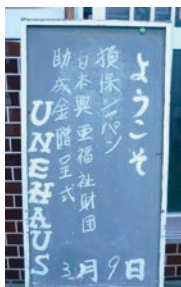 ようこそ
損保ジャパン
日本興亜福祉財団
助成金贈呈式
UNEHAUS
3月9日